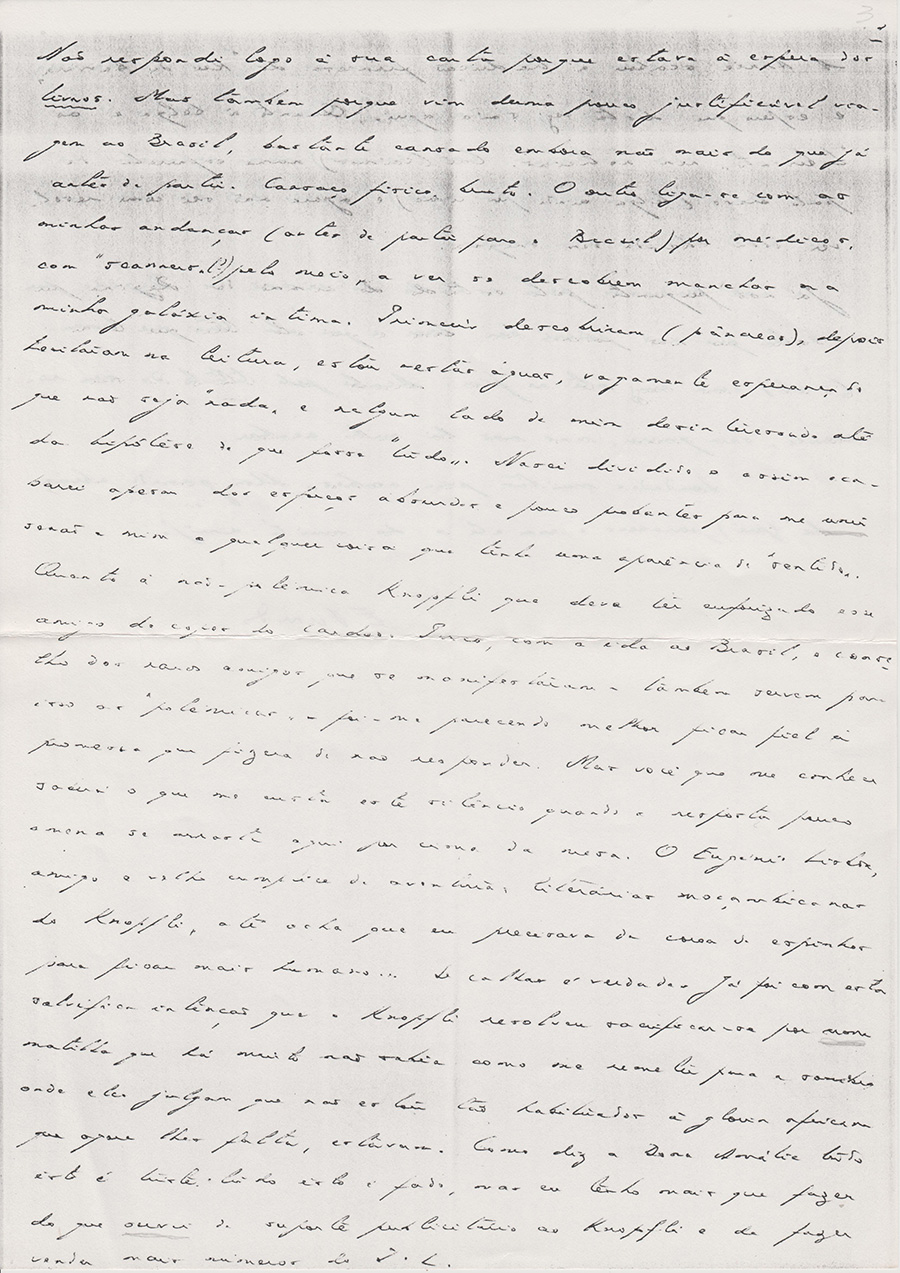 3
Não respondi logo à sua carta porque estava à espera dos
livros. Mas também porque vim duma pouco justificável via-
gem ao Brasil, bastante cansado embora não mais do que já
antes de partir. Cansaço físico, bruto. O outro liga-se com as
minhas andanças (antes de partir para o Brasil) por médicos,
com "scanners(?) pelo meio", a ver se descobrem manchas na
minha galáxia íntima. Primeiro descobriram (pâncreas), depois
hesitaram na leitura, estou nestas águas, vagamente esperando
que não seja "nada" e nalgum lado de mim desinteressado até
da hipótese de que fosse "tudo". Nasci dividido e assim aca-
barei apesar dos esforços absurdos e pouco probantes para me unir
senão a mim a qualquer coisa que tenha uma aparência de "sentido".
Quanto à não-polémica Knopfli que deve ter euforizado esse
amigo do
Brasil, o conse-
lho dos raros amigos que se manifestaram – também servem para
isso as "polémicas" – foi-me parecendo melhor ficar fiel à
promessa que fizera de não responder. Mas você que me conhece
saberá o que me custa este silêncio quando a resposta pouco
amena se arrasta aqui por cima da mesa. O Eugénio Lisboa,
amigo e velho cúmplice de aventuras literárias moçambicanas
do Knopfli, até acha que eu precisava da coroa de espinhos
para ficar mais humano... Se calhar é verdade. Já foi com esta
salvífica intenção que o Knopfli resolveu sacrificar-se por uma
matilha que há muito não sabia como me remeter para a sombra
onde eles julgam que não estou tão habilitados à glória africana
que agora lhes falta, estavam. Como diz a Dona Amália tudo
isto é triste, tudo isto é fado, mas eu tenho mais que fazer
do que servir de suporte publicitário ao Knopfli e de fazer
vender mais números do J. L.